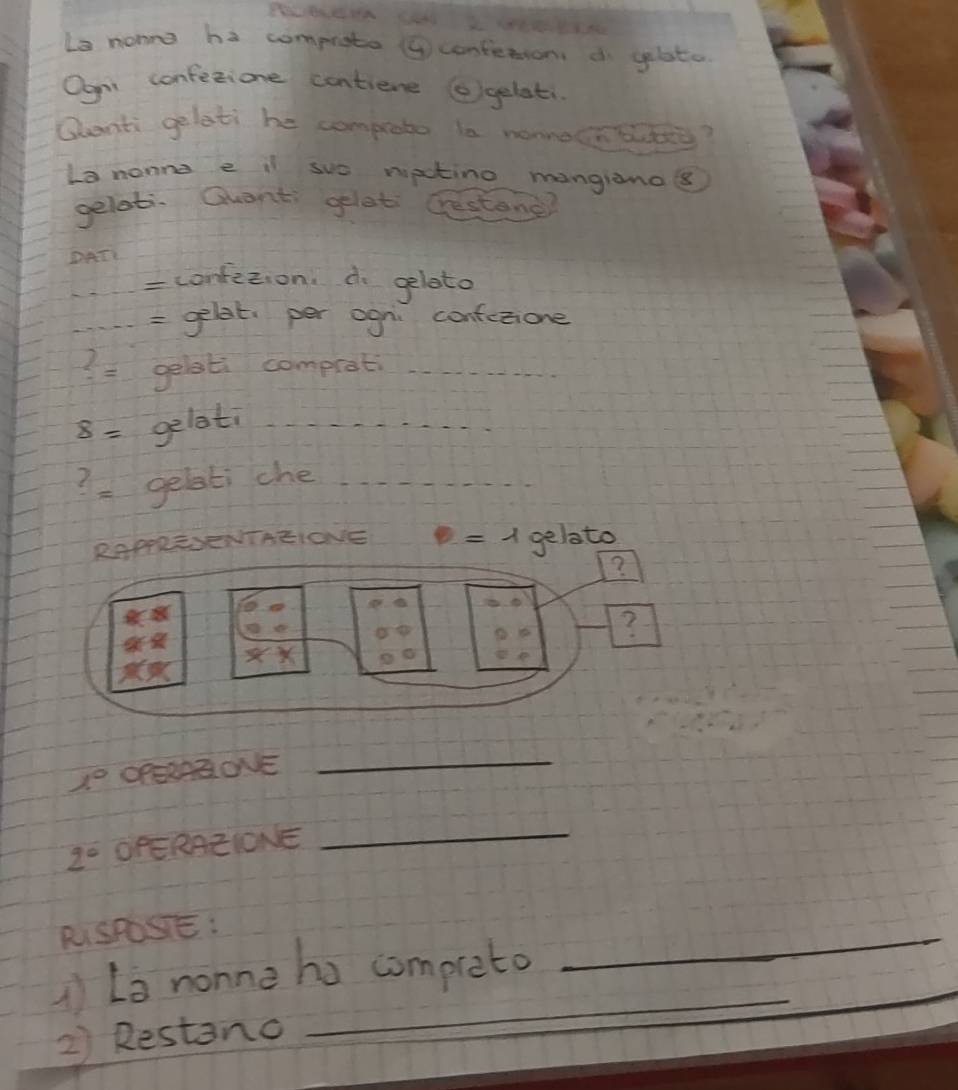 La nonna ha comprato 4 confezioni di gelato.
Ogni confezione contiene 6 gelati.
Quanti gelati ha comprato la nonna in tutto?
La nonna e il suo nipotino mangiano 8
gelati. Quanti gelati restano?
DATI
..... = confezioni di gelato
..... = gelati per ogni confezione
? = gelati comprati ..........
8 = gelati ..........
? = gelati che ..........
RAPPRESENTAZIONE = 1 gelato
?
?
1° OPERAZIONE
2° OPERAZIONE
RISPOSTE:
1) La nonna ha comprato
2) Restano